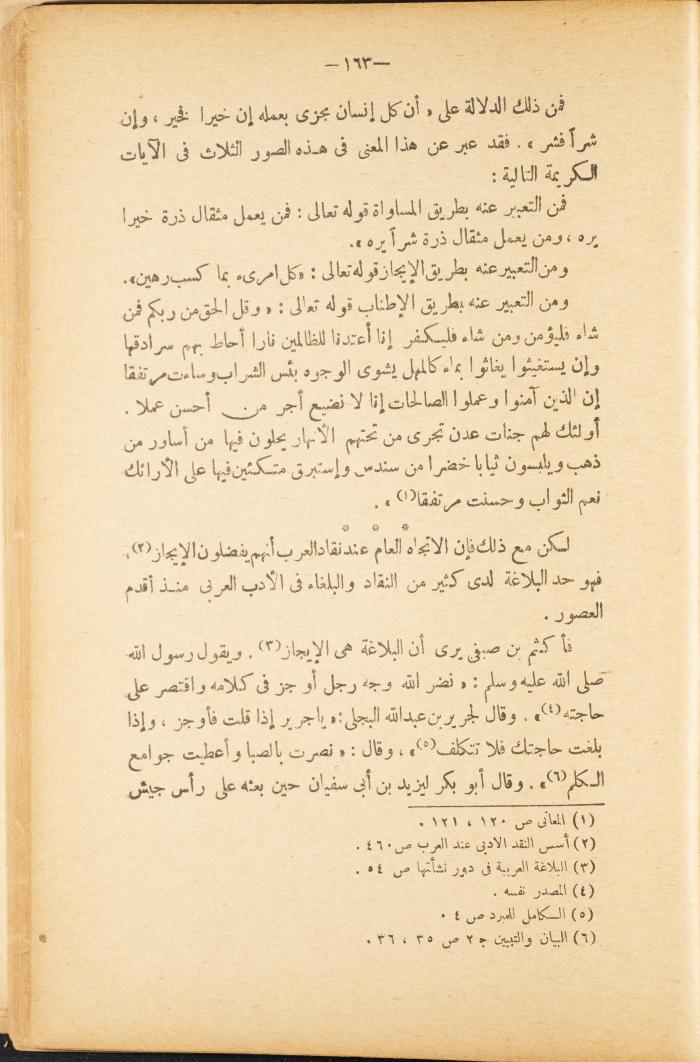 —١٦٣—
فمن ذلك الدلالة على « أن كل إنسان مجزى بعمله إن خيرا فخير ، وإن
شراً فشر » . فقد عبر عن هذا المعنى فى هـذه الصور الثلاث فى الآيات
الكريمة التالية :
فمن التعبير عنه بطريق المساواة قوله تعالى : فمن يعمل مثقال ذرة خيرا
يره ، ومن يعمل مثقال ذرة شراً يره » .
ومن التعبير عنه بطريق الإيجاز قوله تعالى : «كل امرىء بما كسب رهين» .
ومن التعبير عنه بطريق الإطناب قوله تعالى : « وقل الحق من ربكم فمن
شاء فليؤمن ومن شاء فليكفر إنا أعتدنا للظالمين نارا أحاط بهم سرادقها
وإن يستغيثوا يغاثوا بماء كالمهل يشوى الوجوه بئس الشراب وساءت مرتفقا
إن الذين آمنوا وعملوا الصالحات إنا لا نضيع أجر من أحسن عملا .
أولئك لهم جنات عدن تجرى من تحتهم الأنهار يحلون فيها من أساور من
ذهب ويلبسون ثيابا خضرا من سندس وإستبرق متكئين فيها على الأرائك
نعم الثواب وحسنت مرتفقا(١) » .
* * *
لكن مع ذلك فإن الاتجاه العام عند نقاد العرب أنهم يفضلون الإيجاز(٢) ،
فهو حد البلاغة لدى كثير من النقاد والبلغاء فى الأدب العربى منـذ أقدم
العصور .
فأكثم بن صيفى يرى أن البلاغة هى الإيجاز(٣) . ويقول رسول الله
صلى الله عليه وسلم : « نضر الله وجه رجل أوجز فى كلامه واقتصر على
حاجته(٤)» . وقال لجرير بن عبدالله البجلى : « ياجرير إذا قلت فأوجز ، وإذا
بلغت حاجتك فلا تتكلف(٥)» ، وقال : « نصرت بالصبا وأعطيت جوامع
الكلم(٦)» . وقال أبو بكر ليزيد بن أبى سفيان حين بعثه على رأس جيش
(١) المعانى ص ١٢٠ ، ١٢١ .
(٢) أسس النقد الادبى عند العرب ص ٤٦٠ .
(٣) البلاغة العربية فى دور نشأتها ص ٥٤ .
(٤) المصدر نفسه .
(٥) الكامل للمبرد ص ٤ .
(٦) البيان والتبيين ج ٢ ص ٣٥ ، ٣٦ .